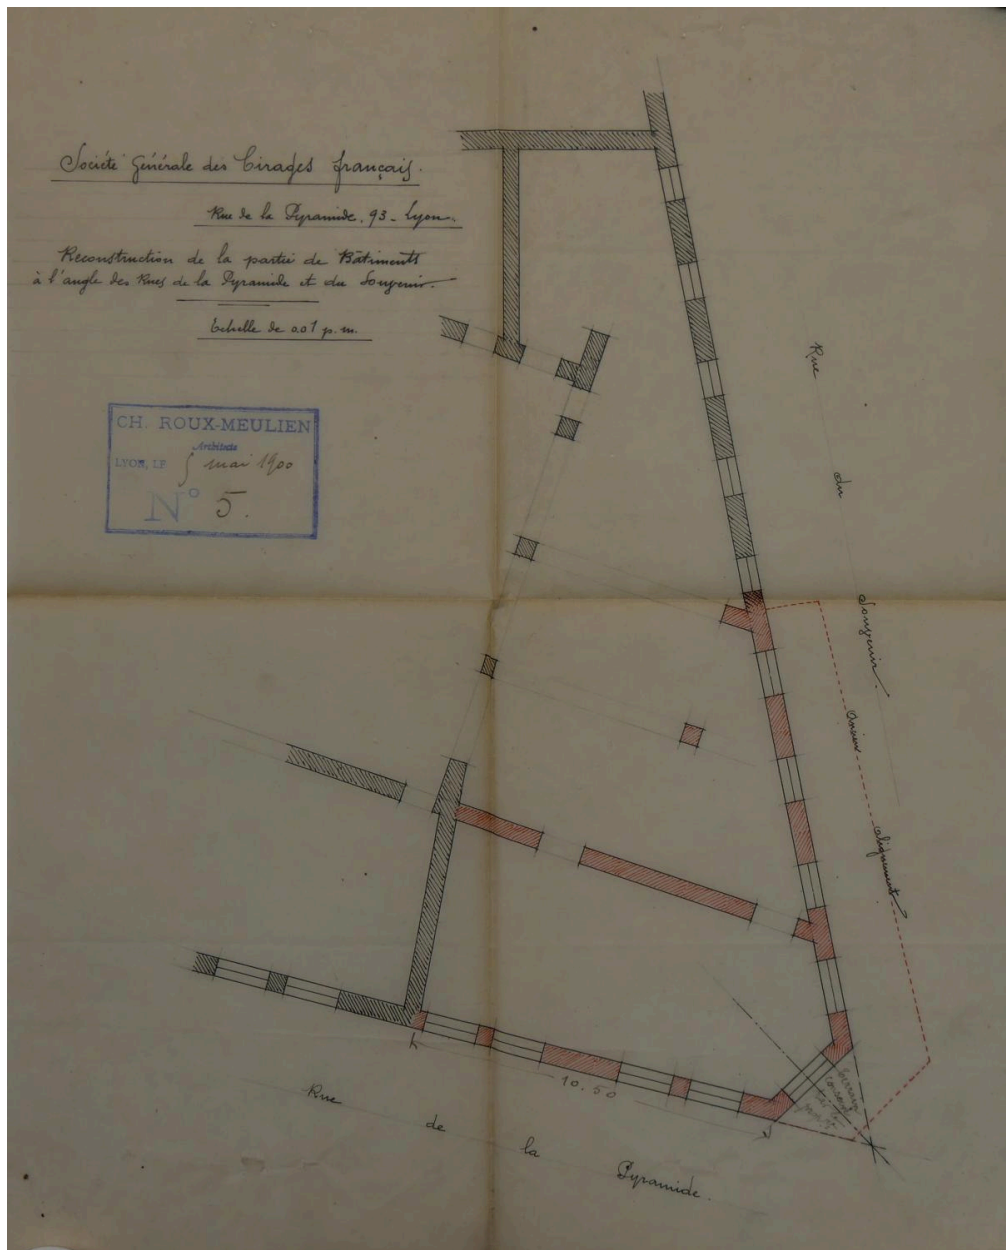 Société Générale des Cirages français.
Rue de la Pyramide, 93 - Lyon.
Reconstruction de la partie de Bâtiments
à l'angle des Rues de la Pyramide et du Souvenir.
Echelle de 0.01 p. m.
CH. ROUX-MEULIEN
Architecte
LYON, LE 5 mai 1900
N° 5.
Rue
du
Souvenir.
Ancien
alignement
10.50
terrain
Rue
de
la
Pyramide.